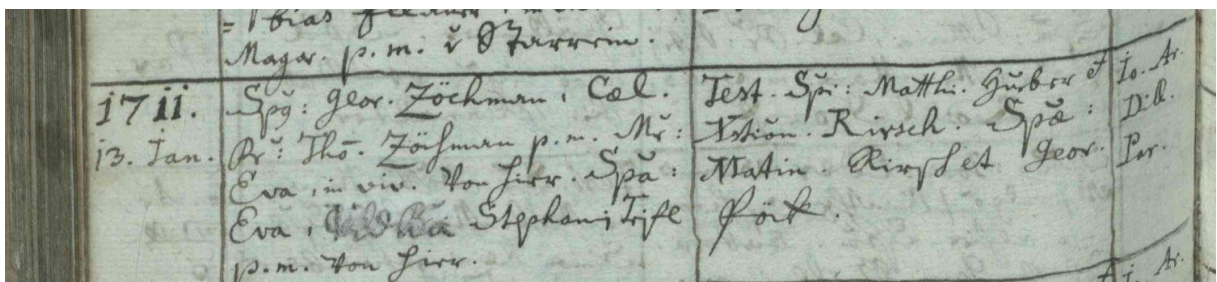 Magar. p.m. v Starrein.
1711.
13. Jan.
Spg: Geor. Zöchman, Cæl.
Pr: Tho. Zöchman p.m. Mr:
Eva, in viv. Von hier. Spa:
Eva, Vidua Stephani Teifl
p.m. Von hier.
Test. Spi: Matthi. Hueber et
Xstion. Kirsch. Spæ:
Matin. Kirsch et Geor.
Pöck.
Jo. Ar.
Dill.
Par.